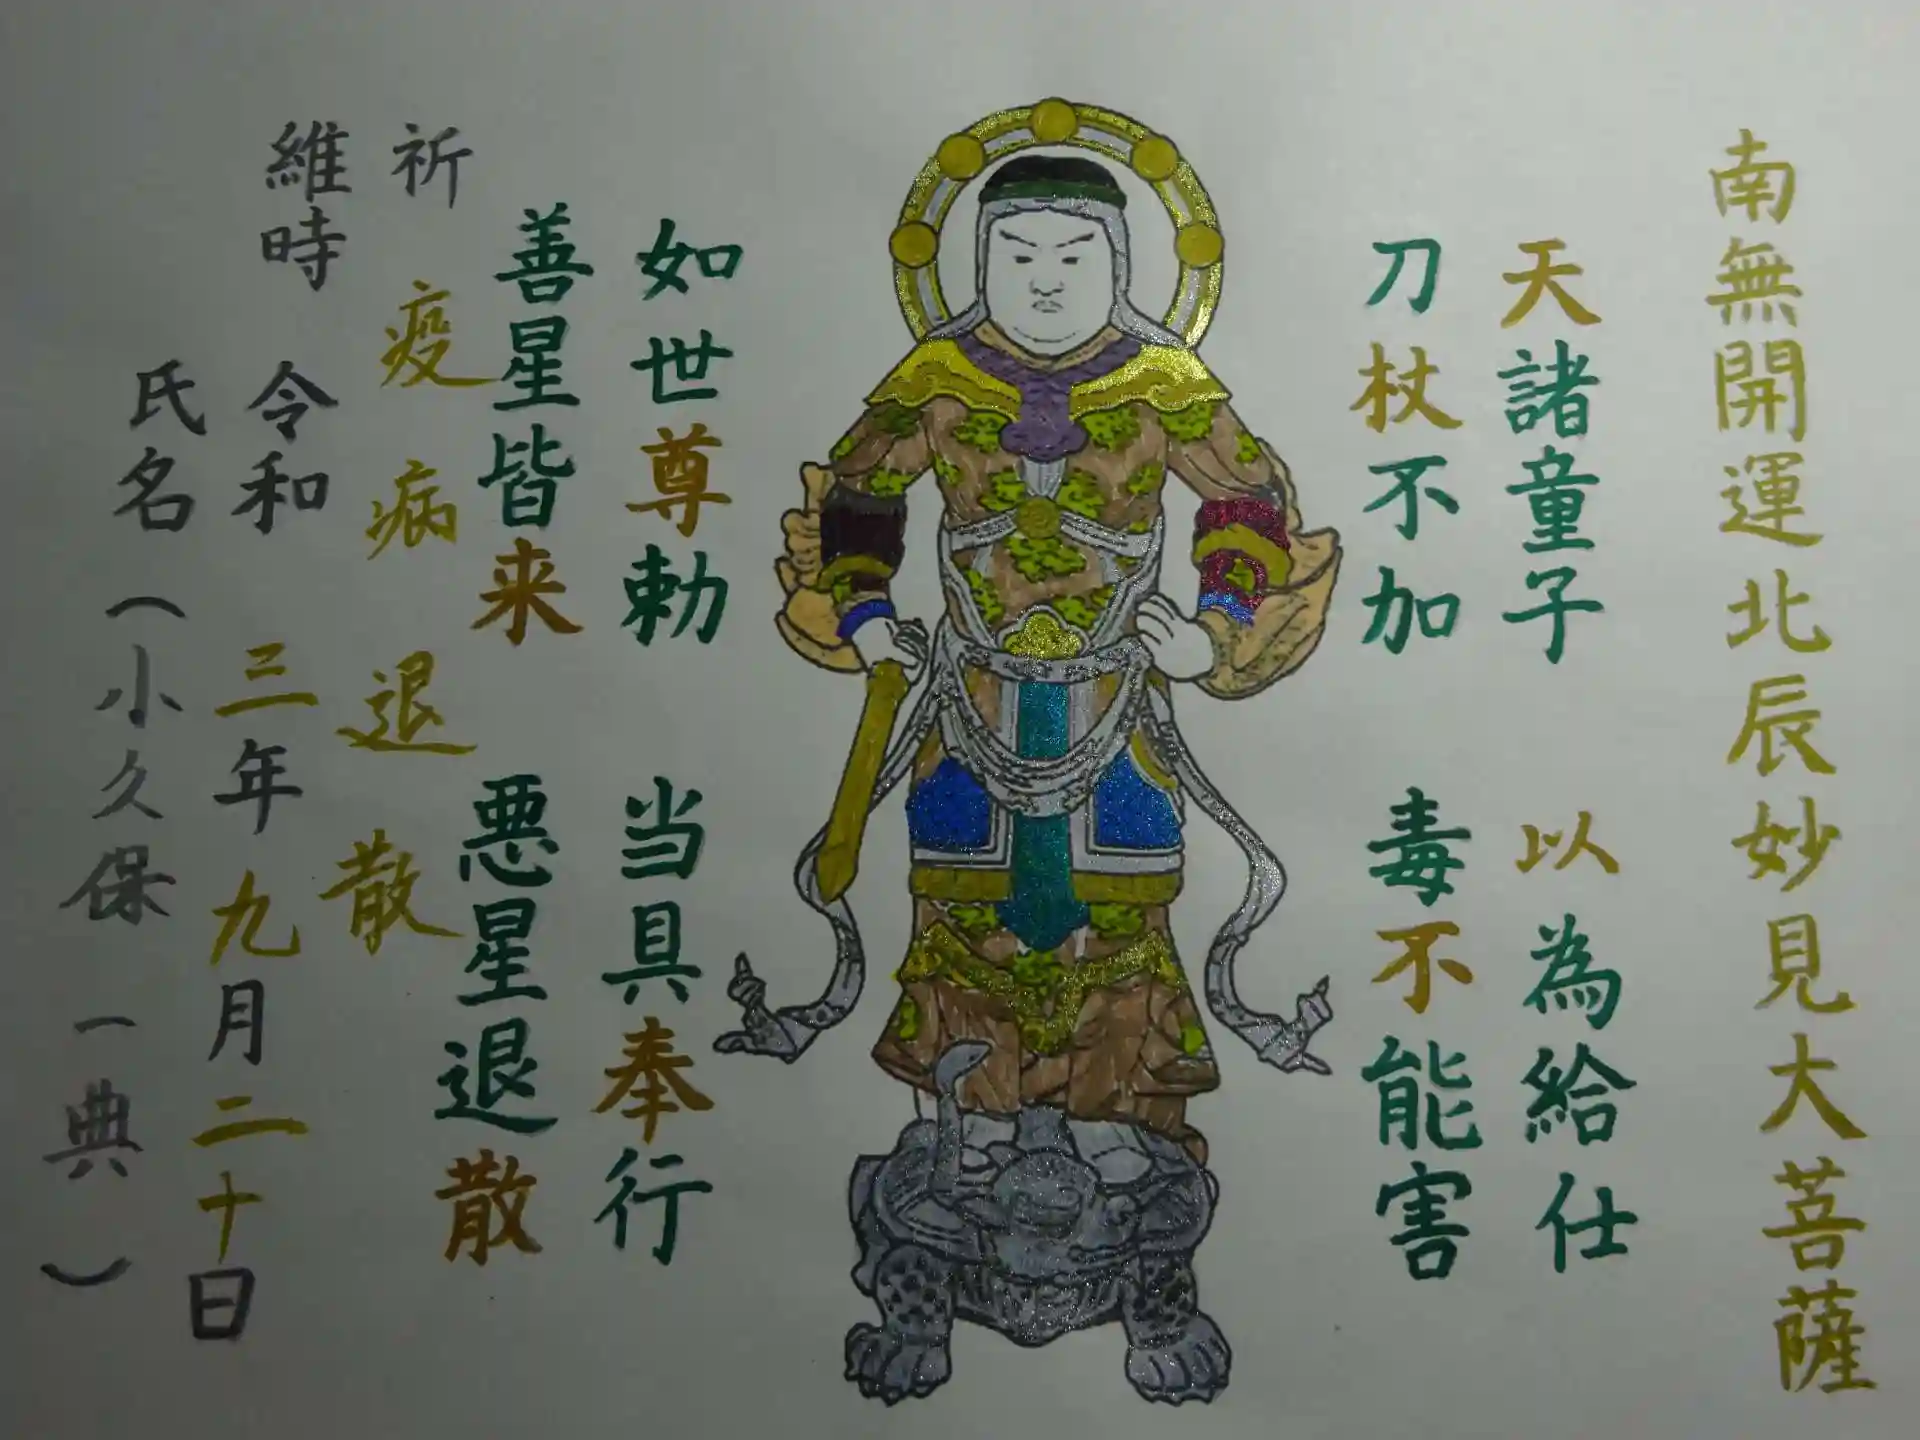 南無開運北辰妙見大菩薩
天諸童子 以為給仕
刀杖不加 毒不能害
如世尊勅 当具奉行
善星皆来 悪星退散
祈 疫病退散
維時 令和三年九月二十日
氏名(小久保一典)